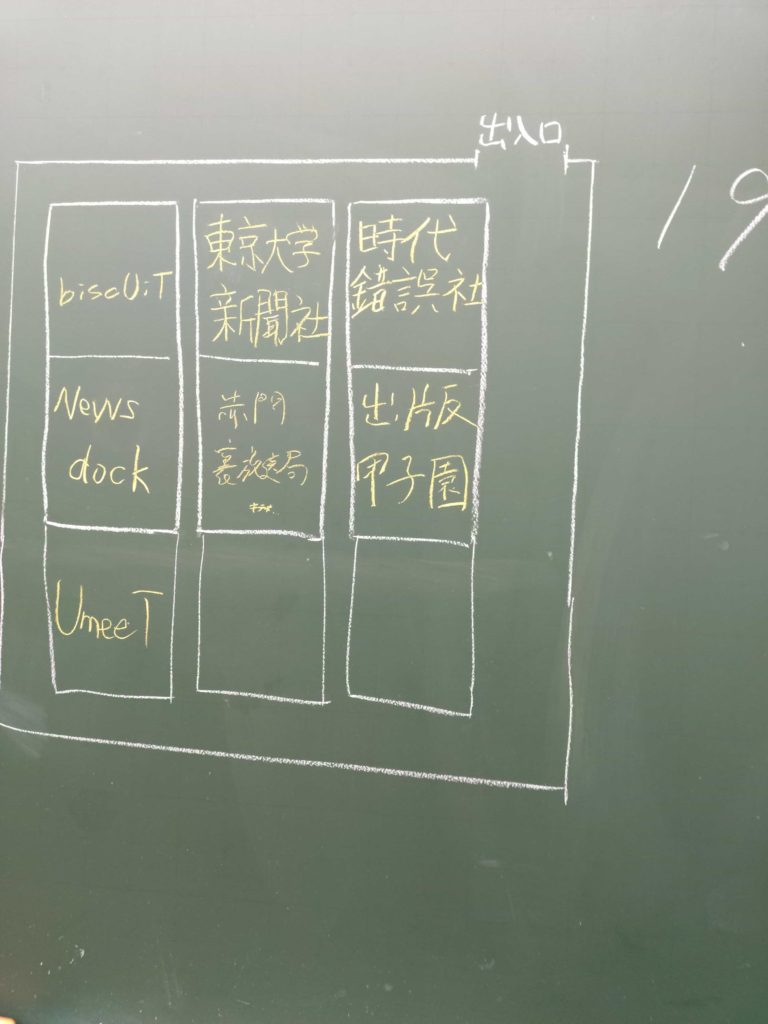 出入口
19
biscUiT
東京大学
新聞社
時代
錯誤社
News
dock
赤門
裏放送局
出版
甲子園
UmeeT